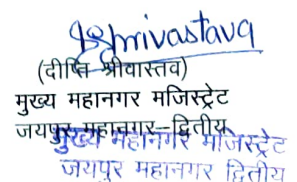 Shrivastava
(दीप्ति श्रीवास्तव)
मुख्य महानगर मजिस्ट्रेट
जयपुर महानगर–द्वितीय
मुख्य महानगर मजिस्ट्रेट
जयपुर महानगर द्वितीय